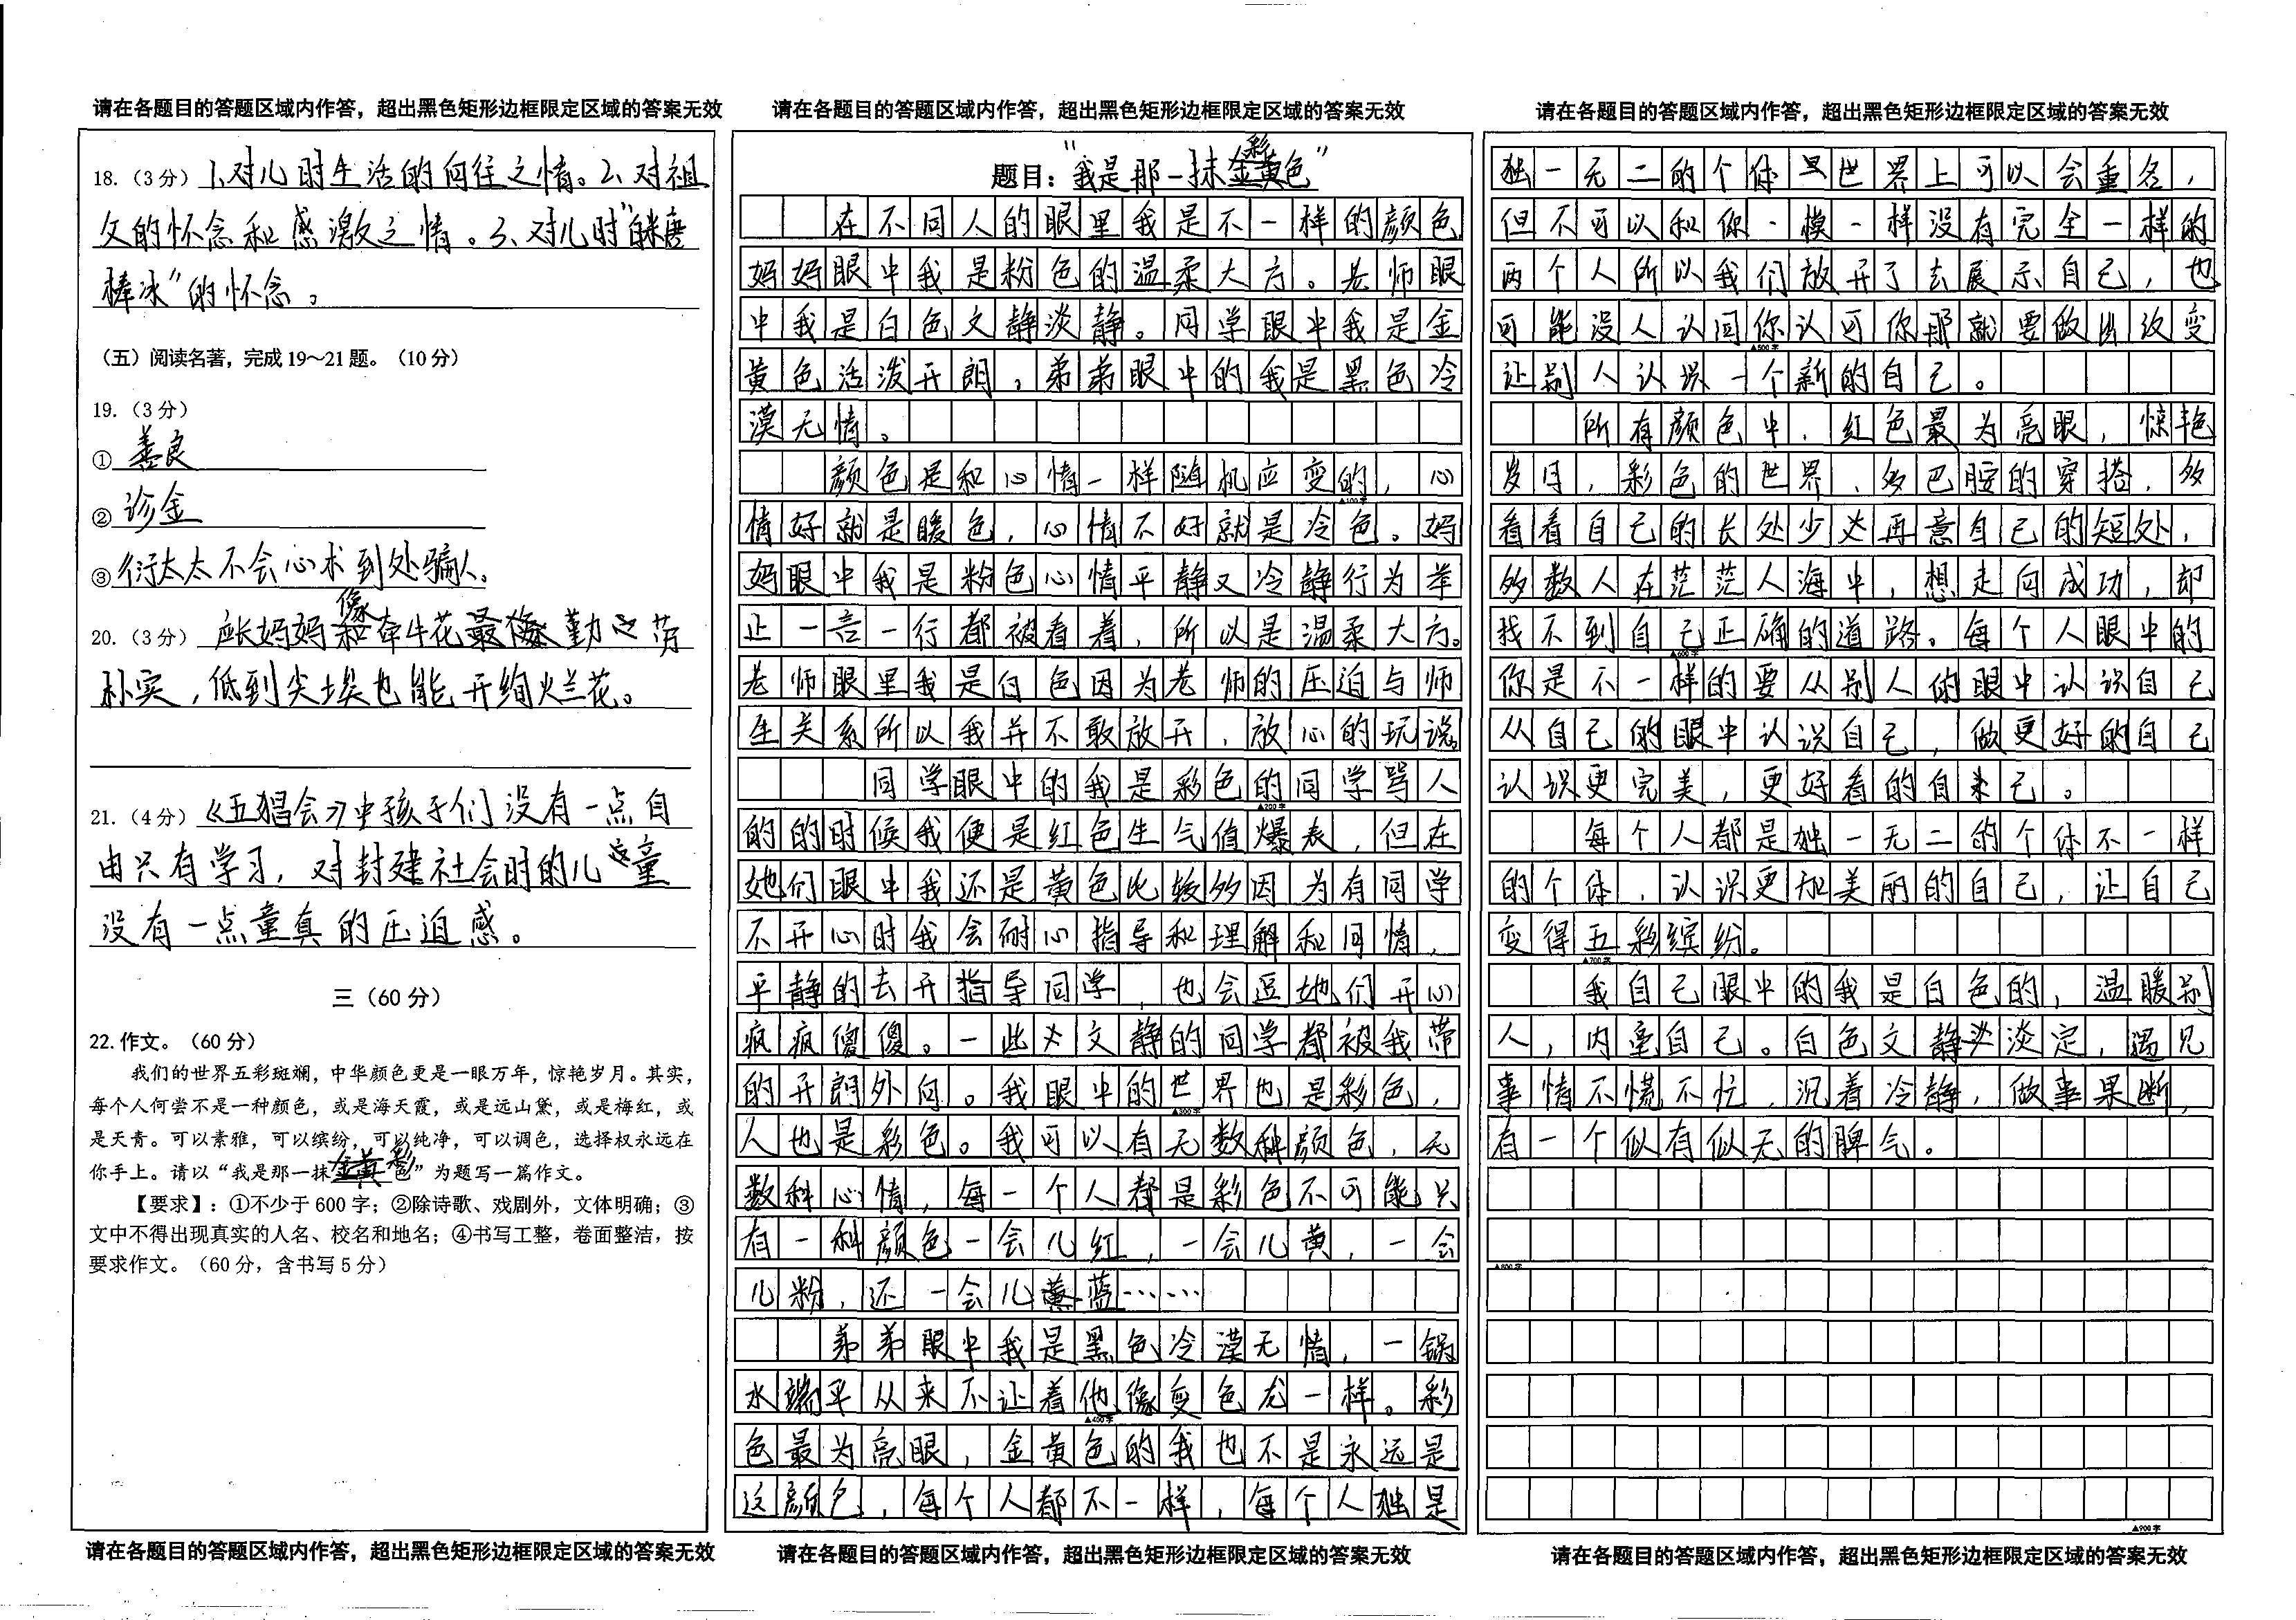 请在各题目的答题区域内作答，超出黑色矩形边框限定区域的答案无效
18.（3分）1、对儿时生活的向往之情。2、对祖
父的怀念和感激之情。3、对儿时“糖
棒冰”的怀念。
（五）阅读名著，完成19～21题。（10分）
19.（3分）
① 善良
② 诊金
③ 衍太太不会心术到处骗人。
20.（3分） 长妈妈像牵牛花勤劳
朴实，低到尖埃也能开绚烂花。
21.（4分）《五猖会》中孩子们没有一点自
由只有学习，对封建社会时的儿童
没有一点童真的压迫感。
三（60分）
22.作文。（60分）
我们的世界五彩斑斓，中华颜色更是一眼万年，惊艳岁月。其实，
每个人何尝不是一种颜色，或是海天霞，或是远山黛，或是梅红，或
是天青。可以素雅，可以缤纷，可以纯净，可以调色，选择权永远在
你手上。请以“我是那一抹彩色”为题写一篇作文。
【要求】：①不少于600字；②除诗歌、戏剧外，文体明确；③
文中不得出现真实的人名、校名和地名；④书写工整，卷面整洁，按
要求作文。（60分，含书写5分）
请在各题目的答题区域内作答，超出黑色矩形边框限定区域的答案无效
请在各题目的答题区域内作答，超出黑色矩形边框限定区域的答案无效
题目：“我是那一抹彩色”
在不同人的眼里我是不一样的颜色
妈妈眼中我是粉色的温柔大方。老师眼
中我是白色文静淡静。同学眼中我是金
黄色活泼开朗，弟弟眼中的我是黑色冷
漠无情。
颜色是和心情一样随机应变的，心
▲100字
情好就是暖色，心情不好就是冷色。妈
妈眼中我是粉色心情平静又冷静行为举
止一言一行都被看着，所以是温柔大方。
老师眼里我是白色因为老师的压迫与师
生关系所以我并不敢放开，放心的玩说。
同学眼中的我是彩色的同学骂人
▲200字
的的时候我便是红色生气值爆表，但在
她们眼中我还是黄色比较多因为有同学
不开心时我会耐心指导和理解和同情，
平静的去开指导同学，也会逗她们开心
疯疯傻傻。一些文静的同学都被我带
的开朗外向。我眼中的世界也是彩色，
▲300字
人也是彩色。我可以有无数种颜色，无
数种心情，每一个人都是彩色不可能只
有一种颜色一会儿红，一会儿黄，一会
儿粉，还一会儿蓝……
弟弟眼中我是黑色冷漠无情，一锅
水端平从来不让着他像变色龙一样。彩
▲400字
色最为亮眼，金黄色的我也不是永远是
这颜色，每个人都不一样，每个人独是
请在各题目的答题区域内作答，超出黑色矩形边框限定区域的答案无效
请在各题目的答题区域内作答，超出黑色矩形边框限定区域的答案无效
独一无二的个体世界上可以会重名，
但不可以和你一模一样没有完全一样的
两个人所以我们放开了去展示自己，也
可能没人认同你认可你那就要做出改变
▲500字
让别人认识一个新的自己。
所有颜色中，红色最为亮眼，惊艳
岁月，彩色的世界，多巴胺的穿搭，多
看看自己的长处少再意自己的短处，
多数人在茫茫人海中，想走向成功，却
找不到自己正确的道路。每个人眼中的
▲600字
你是不一样的要从别人的眼中认识自己
从自己的眼中认识自己，做更好的自己
认识更完美，更好看的自己。
每个人都是独一无二的个体不一样
的个体，认识更加美丽的自己，让自己
变得五彩缤纷。
▲700字
我自己眼中的我是白色的，温暖别
人，内毫自己。白色文静淡定，遇见
事情不慌不忙，沉着冷静，做事果断，
有一个似有似无的脾气。
▲800字
▲900字
请在各题目的答题区域内作答，超出黑色矩形边框限定区域的答案无效